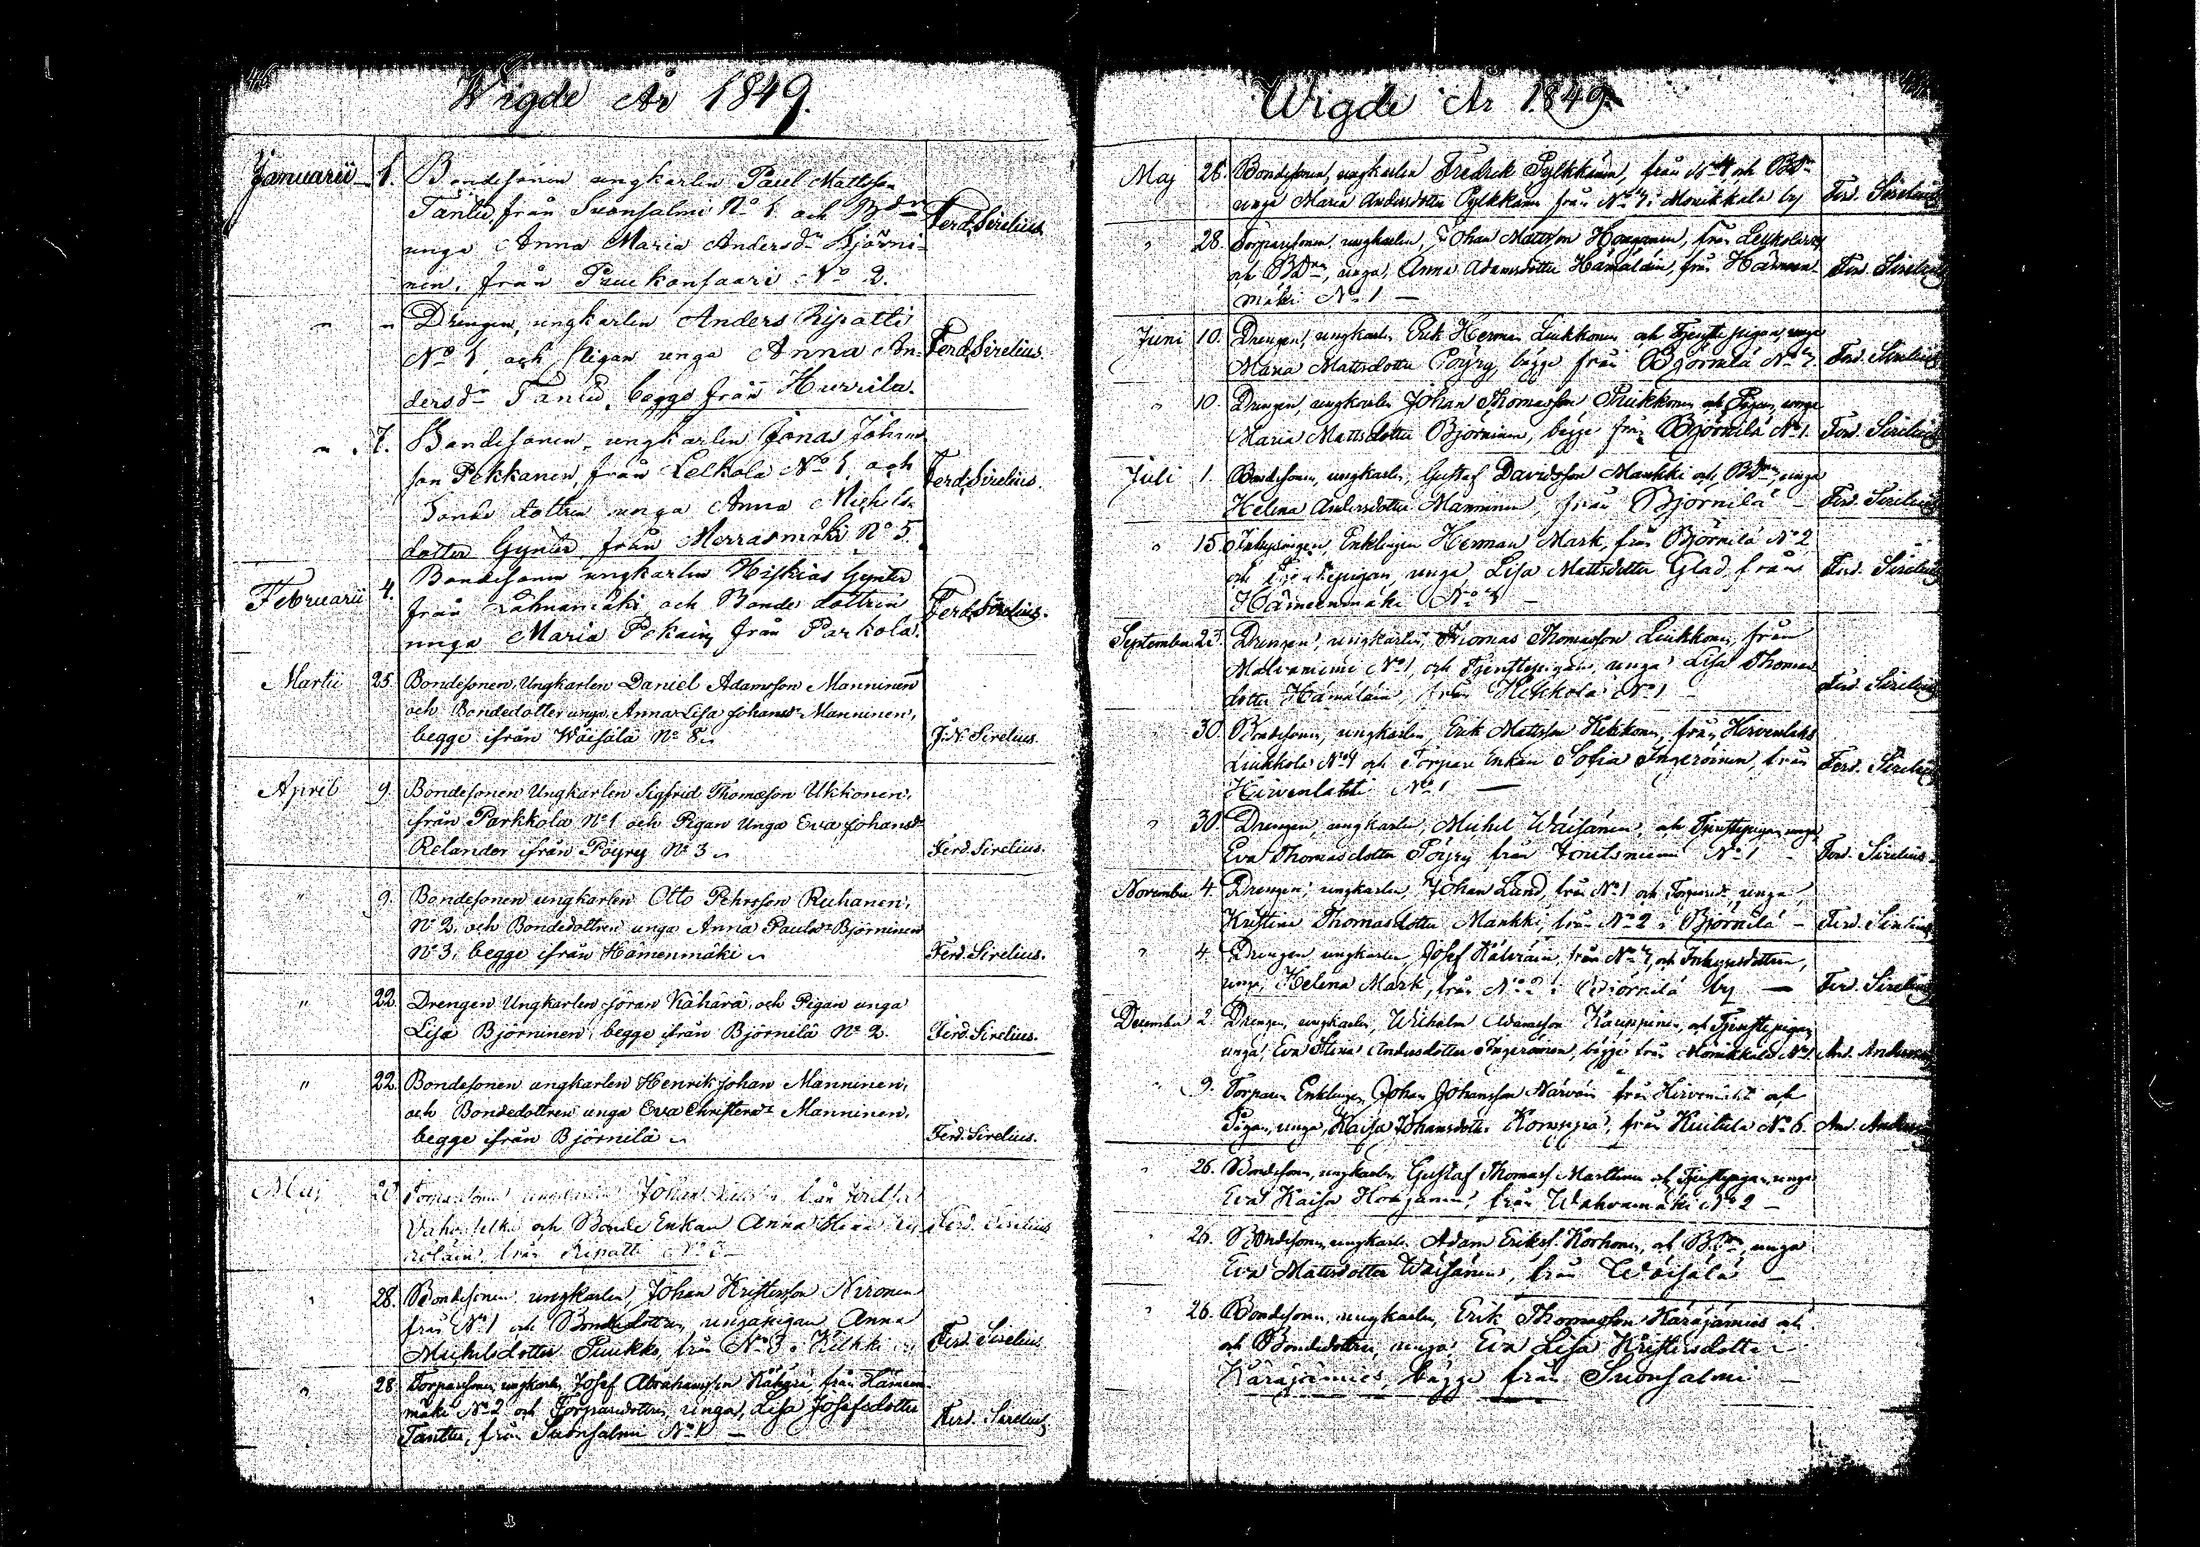 46
Wigde År 1849.
Januarii 1. Bondesonen ungkarlen Paul Mattsson
Tanttu, från Suonsalmi No 1 och Bdn
unga Anna Maria Andersdr Björni-
nen, från Pruukansaari No 2. Ferd. Sirelius.
" " Drengen, ungkarlen Anders Ripatti
No 1, och Pigan unga Anna An-
dersdr Tanttu, begge från Hurrila. Ferd. Sirelius.
" 7. Bondesonen, ungkarlen Jonas Johans
son Pekkanen, från Lelkola No 1, och
Bonde dottren unga Anna Michels-
dotter Gynter från Merrasmäki No 5. Ferd. Sirelius.
Februarii 4. Bondesonen ungkarlen Hiskias Gynter
från Lahnamäki och Bonde dottren
unga Maria Pekain, från Parkola. Ferd. Sirelius.
Martii 25. Bondesonen, Ungkarlen Daniel Adamsson Manninen
och Bondedotter unga Anna Lisa Johansdr Manninen,
begge ifrån Wäisälä No 8. J. N. Sirelius.
April 9. Bondesonen Ungkarlen Sigfrid Thomasson Ukkonen,
ifrån Parkkola No 1 och Pigan Unga Eva Johansdr
Relander ifrån Pöyry No 3 Ferd. Sirelius.
" 9. Bondesonen ungkarlen Otto Pehrsson Ruhanen,
No 2, och Bondedottren unga Anna Paulsdr Björninen
No 3, begge ifrån Hämenmäki Ferd. Sirelius.
" 22. Drengen Ungkarlen Jöran Kähärä, och Pigan unga
Lisa Björninen, begge ifrån Björnilä No 2. Ferd. Sirelius.
" 22. Bondesonen ungkarlen Henrik Johan Manninen,
och Bondedottren unga Eva Christersdr Manninen,
begge ifrån Björnilä Ferd. Sirelius.
Maj 20 Johan från
och Bonde Enkan Anna
från Ripatti No Ferd. Sirelius
" 28. Bondesonen ungkarlen, Johan Kristersson Nironen
från No 1 och Bondedottren, unga pigan Anna
Michelsdotter Puukko, från No 3 Ferd. Sirelius
" 28 Torparesonen, ungkarlen, Josef Abrahamsson Kähärä, från Hämeen-
mäki No 2 och Torparedottren, unga, Lisa Josefsdotter
Tanttu, från Suonsalmi No 1 — Ferd. Sirelius
Wigde År 1849.
Maj 26. Bondesonen, ungkarlen Fredrik Pylkkänen, från No 4 och BDn
unga Maria Andersdotter Pylkkänen från No 7 i Monikkala by Ferd. Sirelius
" 28. Torparesonen, ungkarlen, Johan Mattsson Haaganen, från Leikola
och BDn, unga, Anna Adamsdotter Hämäläin, från Hämeen-
mäki No 1 — Ferd. Sirelius
Juni 10. Drengen, ungkarlen Erik Herman Liukkonen och Tjenstepigan, unga
Maria Mattsdotter Pöyry, begge från Björnilä No 7. Ferd. Sirelius
" 10. Drengen, ungkarlen Johan Thomasson Puikkonen och Pigan, unga
Maria Mattsdotter Björninen, begge från Björnilä No 1. Ferd. Sirelius
Juli 1. Bondesonen, ungkarlen, Gustaf Davidsson Mankki och BDn, unga
Helena Andersdotter Manninen, från Björnilä — Ferd. Sirelius
" 15. Inhysingen, Enklingen Herman Mark, från Björnilä No 2
och Tjenstepigan, unga, Lisa Mattsdotter Glad från
Hämeenmäki No Ferd. Sirelius
September 23. Drengen, ungkarlen, Thomas Thomasson Liukkonen, från
Malvaniemi No 1, och Tjenstepigan, unga, Lisa Thomas
dotter Hämäläin, från Heikkola No 1 — Ferd. Sirelius
30. Bondesonen, ungkarlen, Erik Mattsson Kekkonen, från Hirvenlaks
Liukkola No 4 och Torpare Enkan Sofia Ingeroinen, från
Hirvenlahti No 1 — Ferd. Sirelius
" 30. Drengen, ungkarlen, Michel Wäisänen, och Tjenstepigan, unga
Eva Thomasdotter Pöyry från Joutsniemi No 1 — Ferd. Sirelius
November 4. Drengen, ungkarlen, Johan Lund, från No 1 och Torparedr, unga,
Kristina Thomasdotter Mankki, från No 2 i Björnilä — Ferd. Sirelius
" 4. Drengen, ungkarlen, Josef Kälviäin, från No 7, och Inhysesdottren,
unga, Helena Mark, från No 2 i Björnilä by — Ferd. Sirelius
December 2. Drengen, ungkarlen, Wilhelm Adamsson Kauppinen, och Tjenstepigan,
unga, Eva Stina Andersdotter Ingeroinen, begge från Monikkala No 1. And. Anderson
" 9. Torparen Enklingen Johan Johansson Närvän från Hirven och
Pigan, unga, Kaisa Johansdotter Koruppa, från Kiutula No 6. And. Anderson
" 26. Bondesonen, ungkarlen, Gustaf Thomass. Marttinen och Tjenstepigan, unga
Eva Kaisa Haaganen, från Wahvamäki No 2 —
" 26. Bondesonen, ungkarlen Adam Erikss. Korhonen, och B.Dn, unga
Eva Mattsdotter Wäisänen, från Wäisälä —
" 26. Bondesonen, ungkarlen, Erik Thomasson Käräjämies och
och Bondedottren, unga Eva Lisa Kristersdotter
Käräjämies, begge från Suonsalmi —